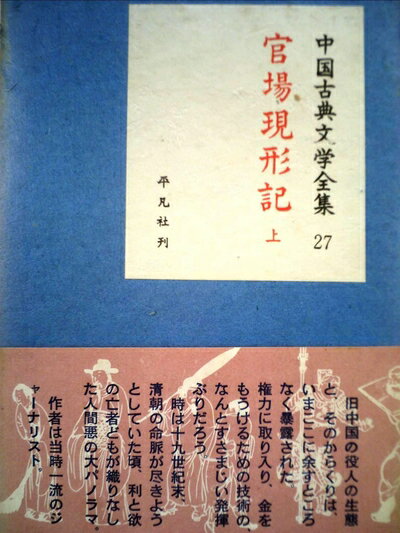 中国古典文学全集 27
官場現形記 上
平凡社刊
旧中国の役人の生態
と、そのからくりは、
いまここに余すところ
なく暴露された。
権力に取り入り、金を
もうけるための技術の、
なんとすさまじい発揮
ぶりだろう。
時は十九世紀末、
清朝の命脈が尽きよう
としていた頃、利と欲
の亡者どもが織りなし
た人間悪の大パノラマ
作者は当時一流のジ
ャーナリスト。